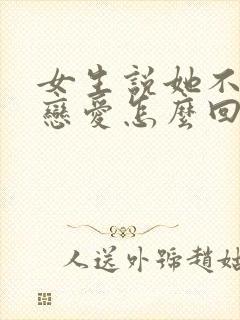 女生說她不
戀愛怎麼回
人送外號趙姑